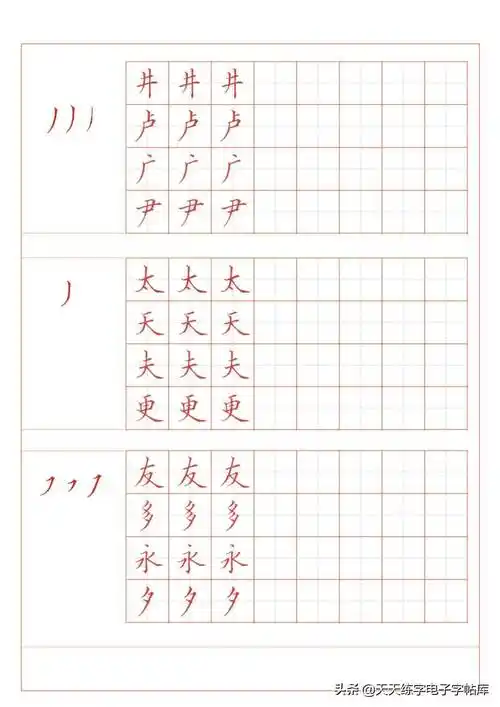 井 井 井
卢 卢 卢
广 广 广
尹 尹 尹
太 太 太
天 天 天
夫 夫 夫
更 更 更
友 友 友
多 多 多
永 永 永
夕 夕 夕
头条 @天天练字电子字帖库